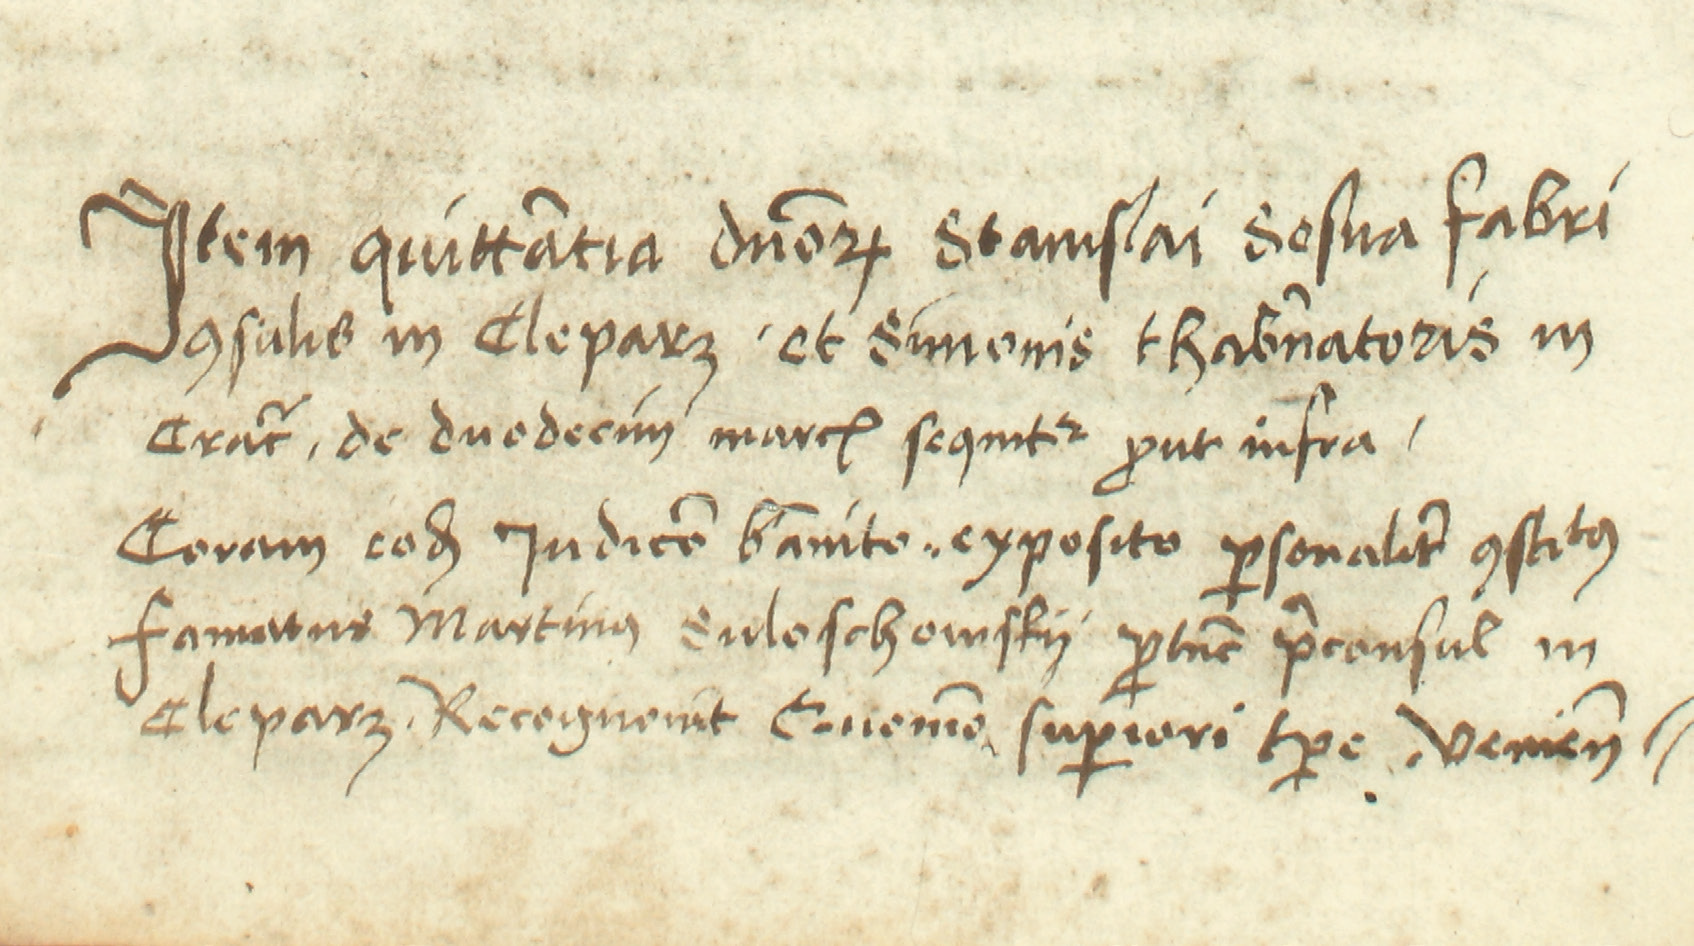 Jtem quittãtia dñoꝝ Stanislai Sosna fabri
ꝯsulis in Cleparz et Simonis thab̃natoris in
Crac̃ de duodecim marcꝭ sequitᵘʳ ꝓut infra
Coram eodẽ Judicio bãnito exposito ꝑsonalit̃ ꝯstitutꝰ
famatus Martinꝰ Suloschowskij ꝓtũc p̃consul in
Cleparz Recognouit Quomõ suꝑiori tꝑe veniẽn